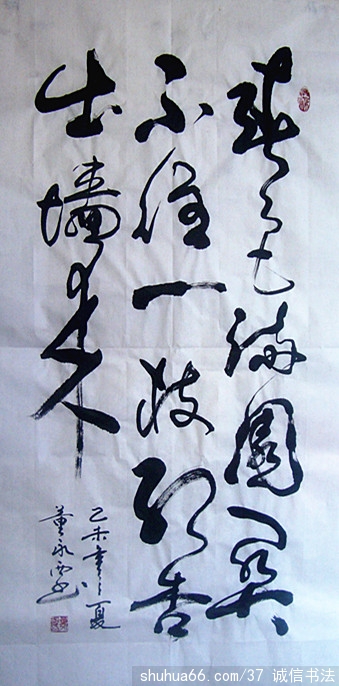 春色满園关
不住一枝红杏
出墙来
乙未年夏
董永
shuhua66.com/37 诚信书法